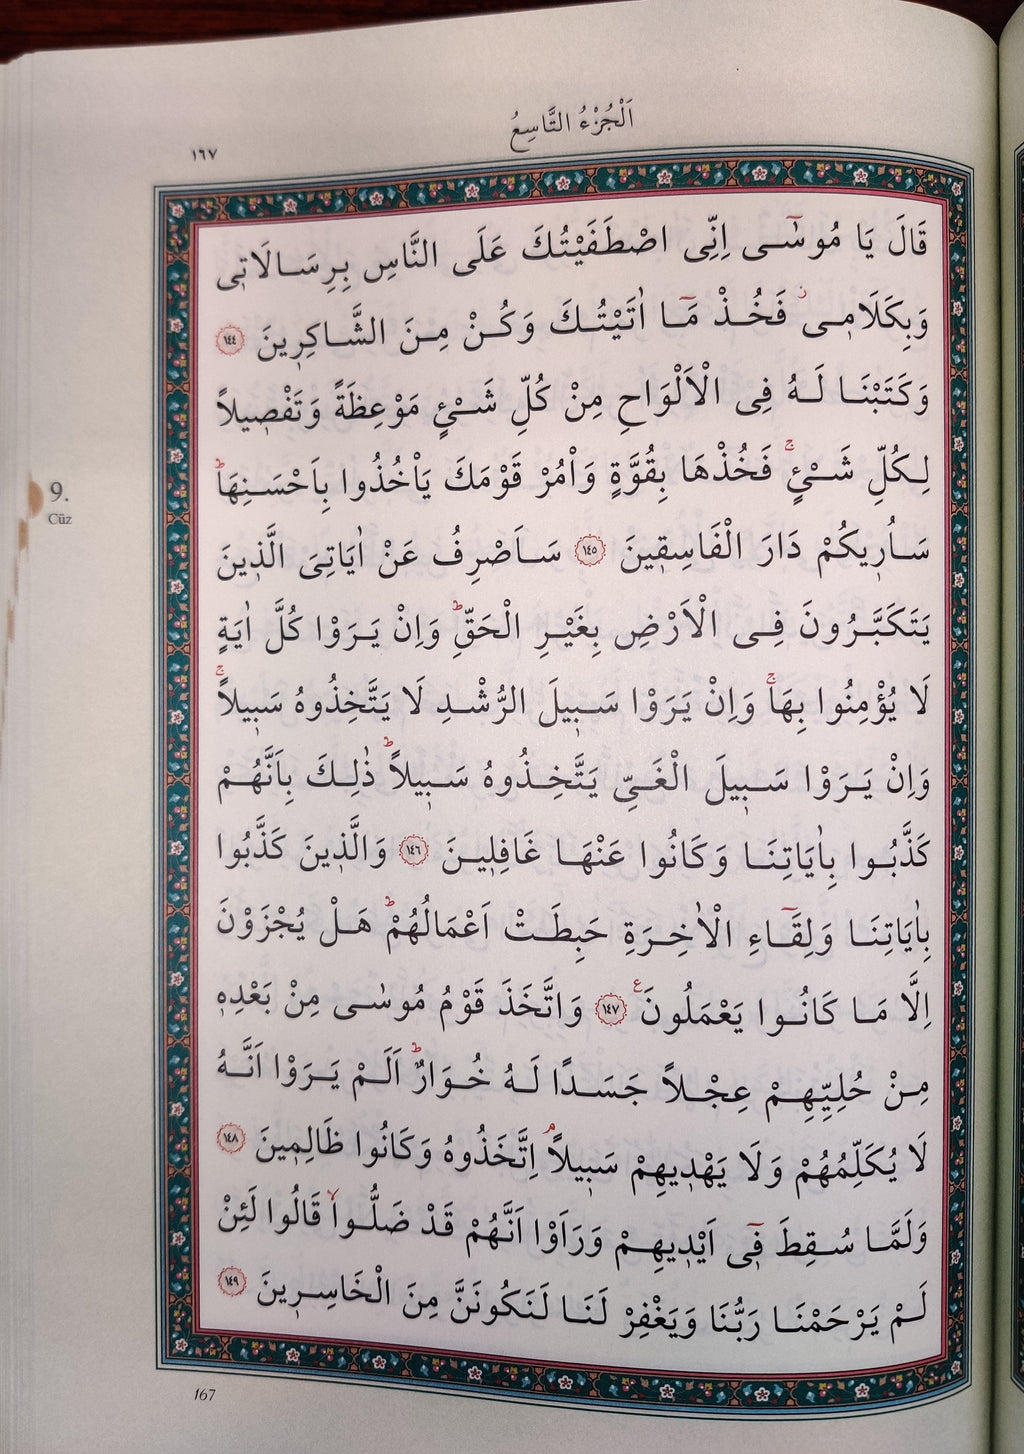 اَلْجُزْءُ التَّاسِعُ
١٦٧
قَالَ يَا مُوسٰٓى اِنِّى اصْطَفَيْتُكَ عَلَى النَّاسِ بِرِسَالَاتٖى
وَبِكَلَامٖىۘ فَخُذْ مَٓا اٰتَيْتُكَ وَكُنْ مِنَ الشَّاكِرٖينَ ١٤٤
وَكَتَبْنَا لَهُ فِى الْاَلْوَاحِ مِنْ كُلِّ شَىْءٍ مَوْعِظَةً وَتَفْصٖيلاً
لِكُلِّ شَىْءٍۚ فَخُذْهَا بِقُوَّةٍ وَاْمُرْ قَوْمَكَ يَاْخُذُوا بِاَحْسَنِهَاؕ
سَاُرٖيكُمْ دَارَ الْفَاسِقٖينَ ١٤٥ سَاَصْرِفُ عَنْ اٰيَاتِىَ الَّذٖينَ
يَتَكَبَّرُونَ فِى الْاَرْضِ بِغَيْرِ الْحَقِّؕ وَاِنْ يَرَوْا كُلَّ اٰيَةٍ
لَا يُؤْمِنُوا بِهَاۚ وَاِنْ يَرَوْا سَبٖيلَ الرُّشْدِ لَا يَتَّخِذُوهُ سَبٖيلاًۚ
وَاِنْ يَرَوْا سَبٖيلَ الْغَىِّ يَتَّخِذُوهُ سَبٖيلاًؕ ذٰلِكَ بِاَنَّهُمْ
كَذَّبُوا بِاٰيَاتِنَا وَكَانُوا عَنْهَا غَافِلٖينَ ١٤٦ وَالَّذٖينَ كَذَّبُوا
بِاٰيَاتِنَا وَلِقَٓاءِ الْاٰخِرَةِ حَبِطَتْ اَعْمَالُهُمْؕ هَلْ يُجْزَوْنَ
اِلَّا مَا كَانُوا يَعْمَلُونَࣖ ١٤٧ وَاتَّخَذَ قَوْمُ مُوسٰى مِنْ بَعْدِهٖ
مِنْ حُلِيِّهِمْ عِجْلاً جَسَدًا لَهُ خُوَارٌؕ اَلَمْ يَرَوْا اَنَّهُ
لَا يُكَلِّمُهُمْ وَلَا يَهْدٖيهِمْ سَبٖيلاًۢ اِتَّخَذُوهُ وَكَانُوا ظَالِمٖينَ ١٤٨
وَلَمَّا سُقِطَ فٖٓى اَيْدٖيهِمْ وَرَاَوْا اَنَّهُمْ قَدْ ضَلُّواۙ قَالُوا لَئِنْ
لَمْ يَرْحَمْنَا رَبُّنَا وَيَغْفِرْ لَنَا لَنَكُونَنَّ مِنَ الْخَاسِرٖينَ ١٤٩
9.
Cüz
167